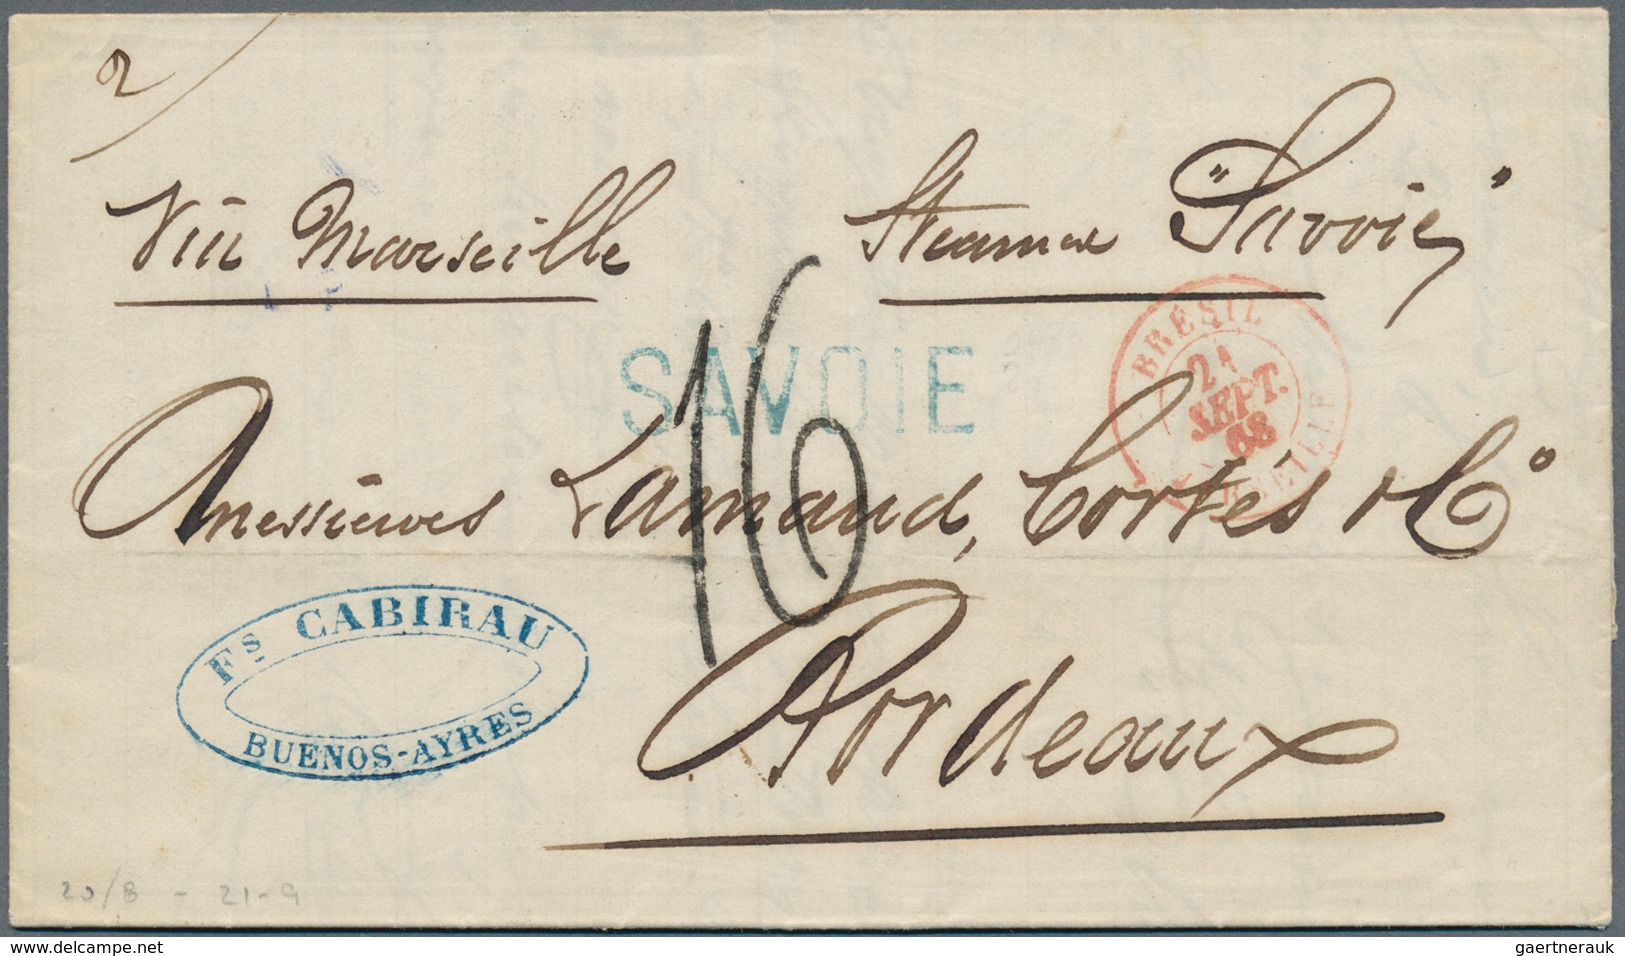 2/
Viâ Marseille
Steamer "Savoie"
SAVOIE
16
BRESIL
21
SEPT.
68
MARSEILLE
Messieurs Lamaud, Cortès & Cº
Bordeaux
Fs CABIRAU
BUENOS-AYRES
20/8 - 21-9
delcampe.net
gaertnerauk